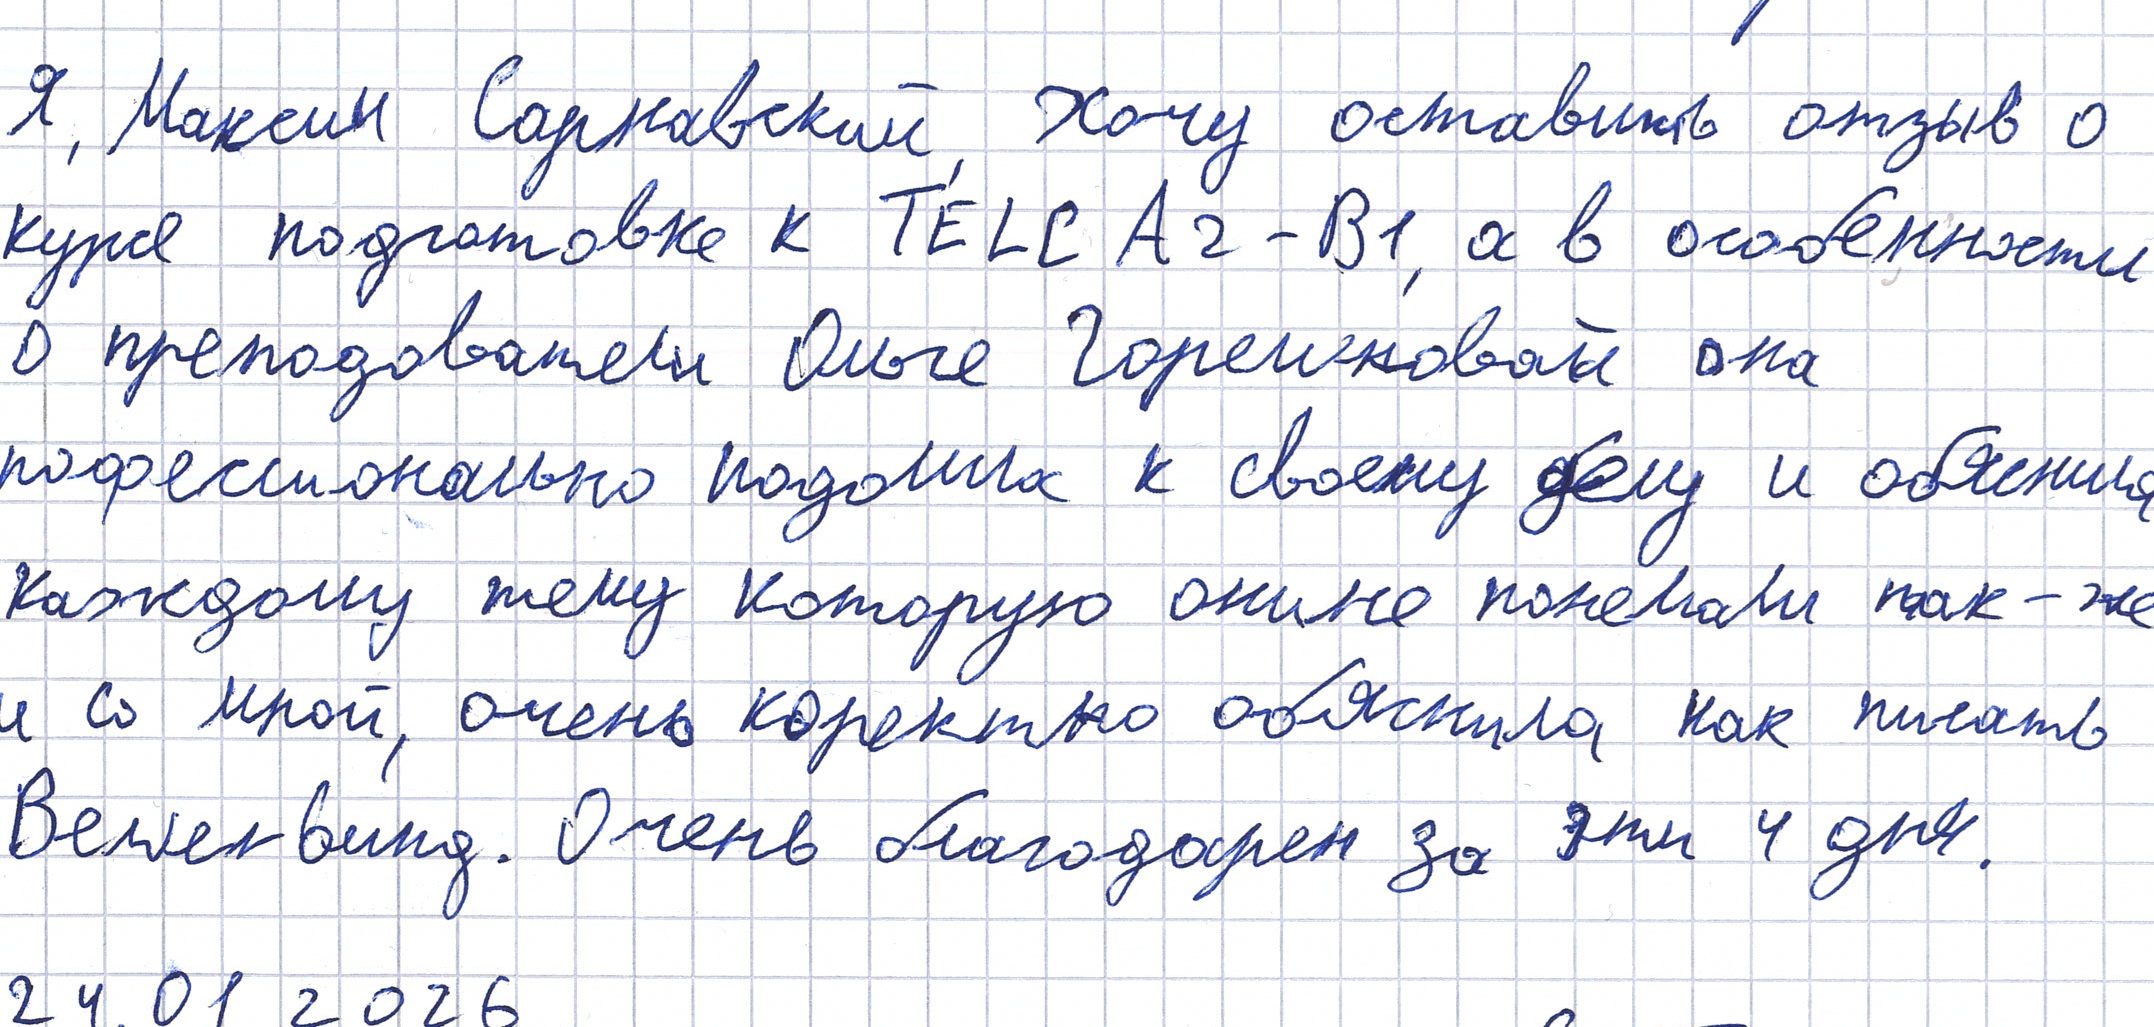 Я, Максим Сарнавский, хочу оставить отзыв о
курсе подготовке к TELC A2-B1, а в особенности
о преподователи Ольге Горешновай она
пофессионально подошла к своему делу и обяснила
каждому тему которую они не понемали так-же
и со мной, очень коректно обяснила как писать
Вешенвинд. Очень благодарен за эти 4 дня.
24.01 2026